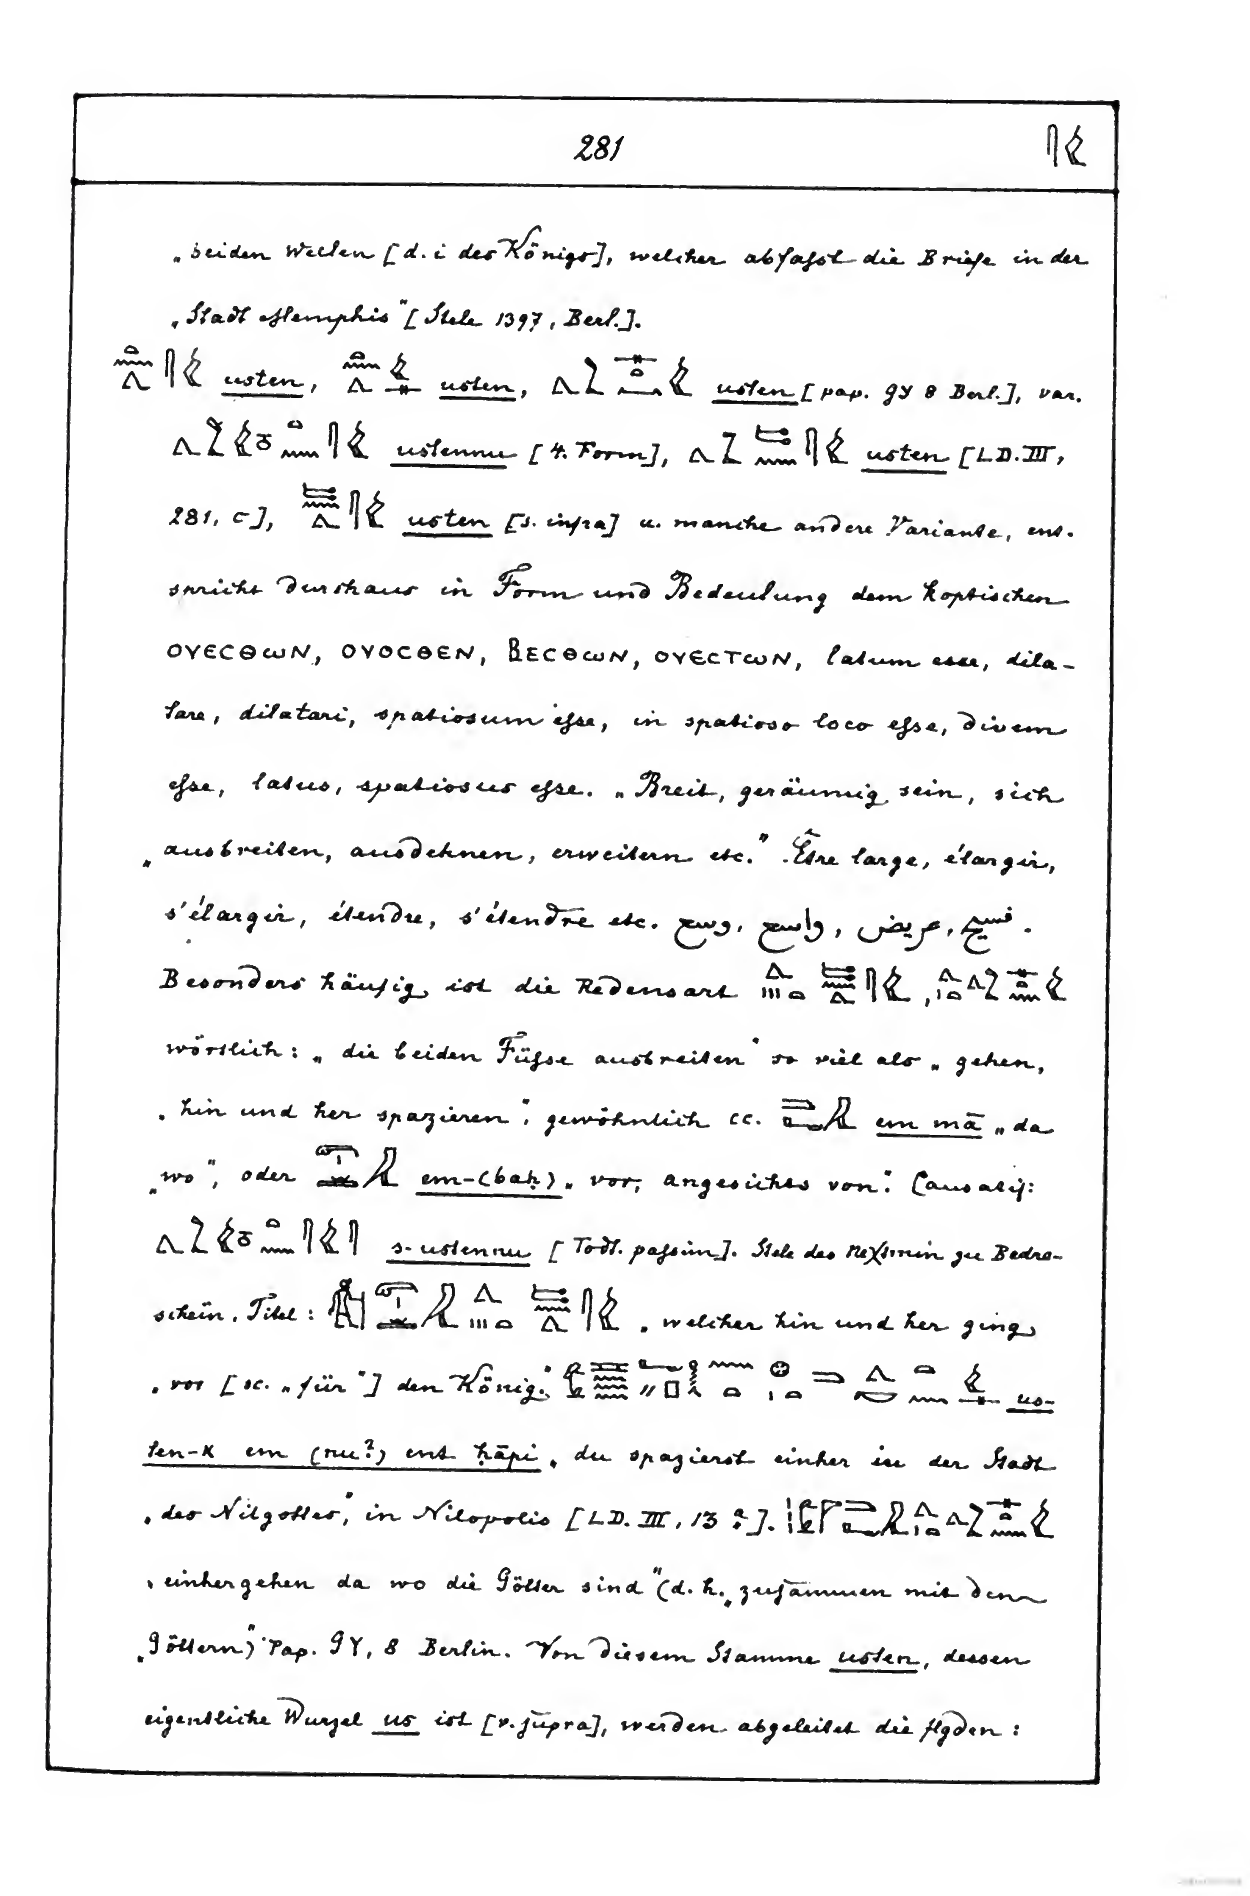 281
„beiden Welten [d. i des Königs], welcher abfaßt die Briefe in der
„Stadt Memphis" [Stele 1397, Berl.].
usten, usten, usten [pap. 9Y 8 Berl.], var.
ustennu [4. Form], usten [LD. III,
281, c], usten [s. infra] u. manche andere Variante, ent-
spricht durchaus in Form und Bedeutung dem koptischen
ⲟⲩⲉⲥⲑⲱⲛ, ⲟⲩⲟⲥⲑⲉⲛ, ⲃⲉⲥⲑⲱⲛ, ⲟⲩⲉⲥⲧⲱⲛ, latum esse, dila-
tare, dilatari, spatiosum esse, in spatioso loco esse, divem
esse, latus, spatiosus esse. „Breit, geräumig sein, sich
„ausbreiten, ausdehnen, erweitern etc." Être large, élargir,
s'élargir, étendre, s'étendre etc. وسع, واسع, عريض, فسيح.
Besonders häufig ist die Redensart
wörtlich: „die beiden Füsse ausbreiten" so viel als „gehen,
„hin und her spazieren", gewöhnlich cc. em mā „da
„wo", oder em-(baḥ) „vor, angesichts von". Causativ:
s-ustennu [Todt. passim]. Stele des Neχtmin zu Bedra-
scheïn. Titel: „welcher hin und her ging
„vor [sc. „für"] den König." us-
ten-k em (nu?) ent ḥāpi „du spazierst einher in der Stadt
„des Nilgottes", in Nilopolis [LD. III, 13 a].
„einhergehen da wo die Götter sind" (d. h. „zusammen mit den
„Göttern") Pap. 9Y, 8 Berlin. Von diesem Stamme usten, dessen
eigentliche Wurzel us ist [v. supra], werden abgeleitet die flgden: